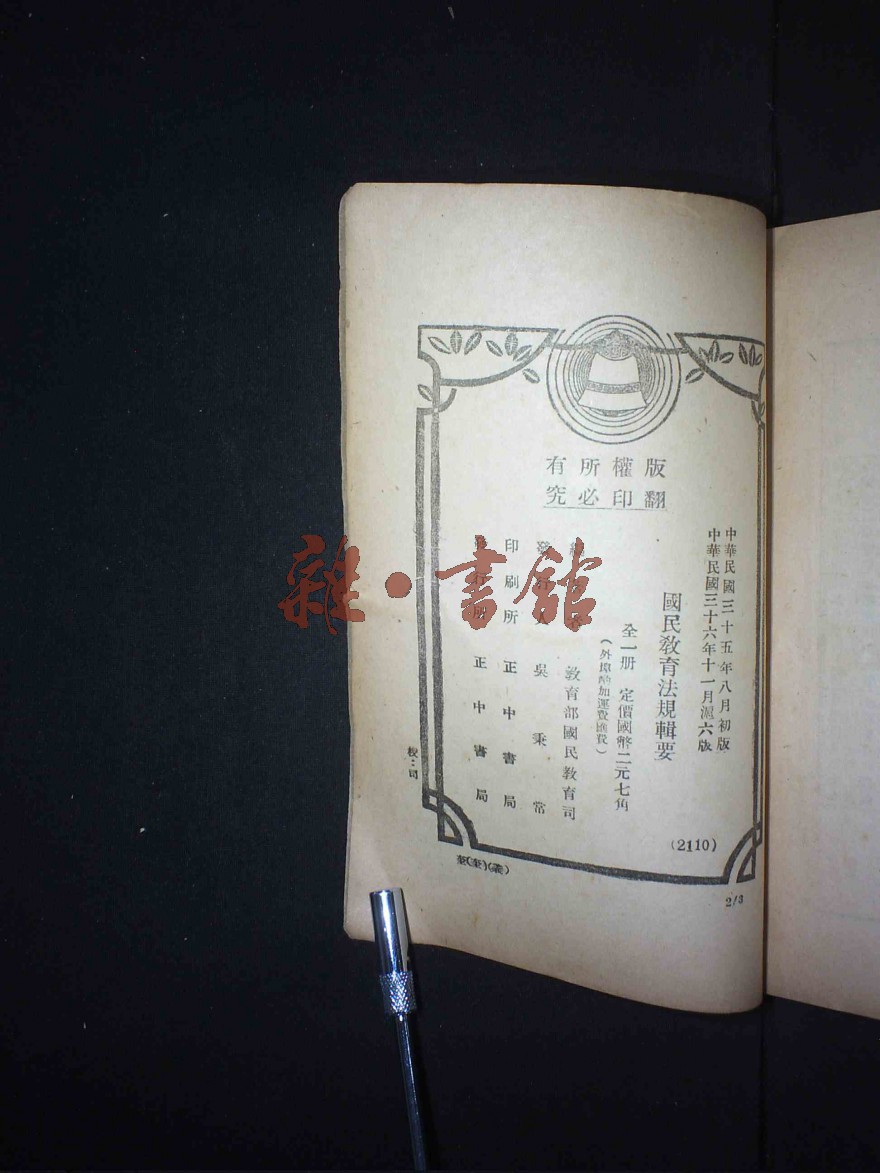 版權所有
翻印必究
中華民國三十五年八月初版
中華民國三十六年十一月滬六版
國民教育法規輯要
全一册 定價國幣二元七角
(外埠酌加運費匯費)
教育部國民教育司
發行人 吳秉常
印刷所 正中書局
發行所 正中書局
(2110)
校：司
2/3
雜·書館